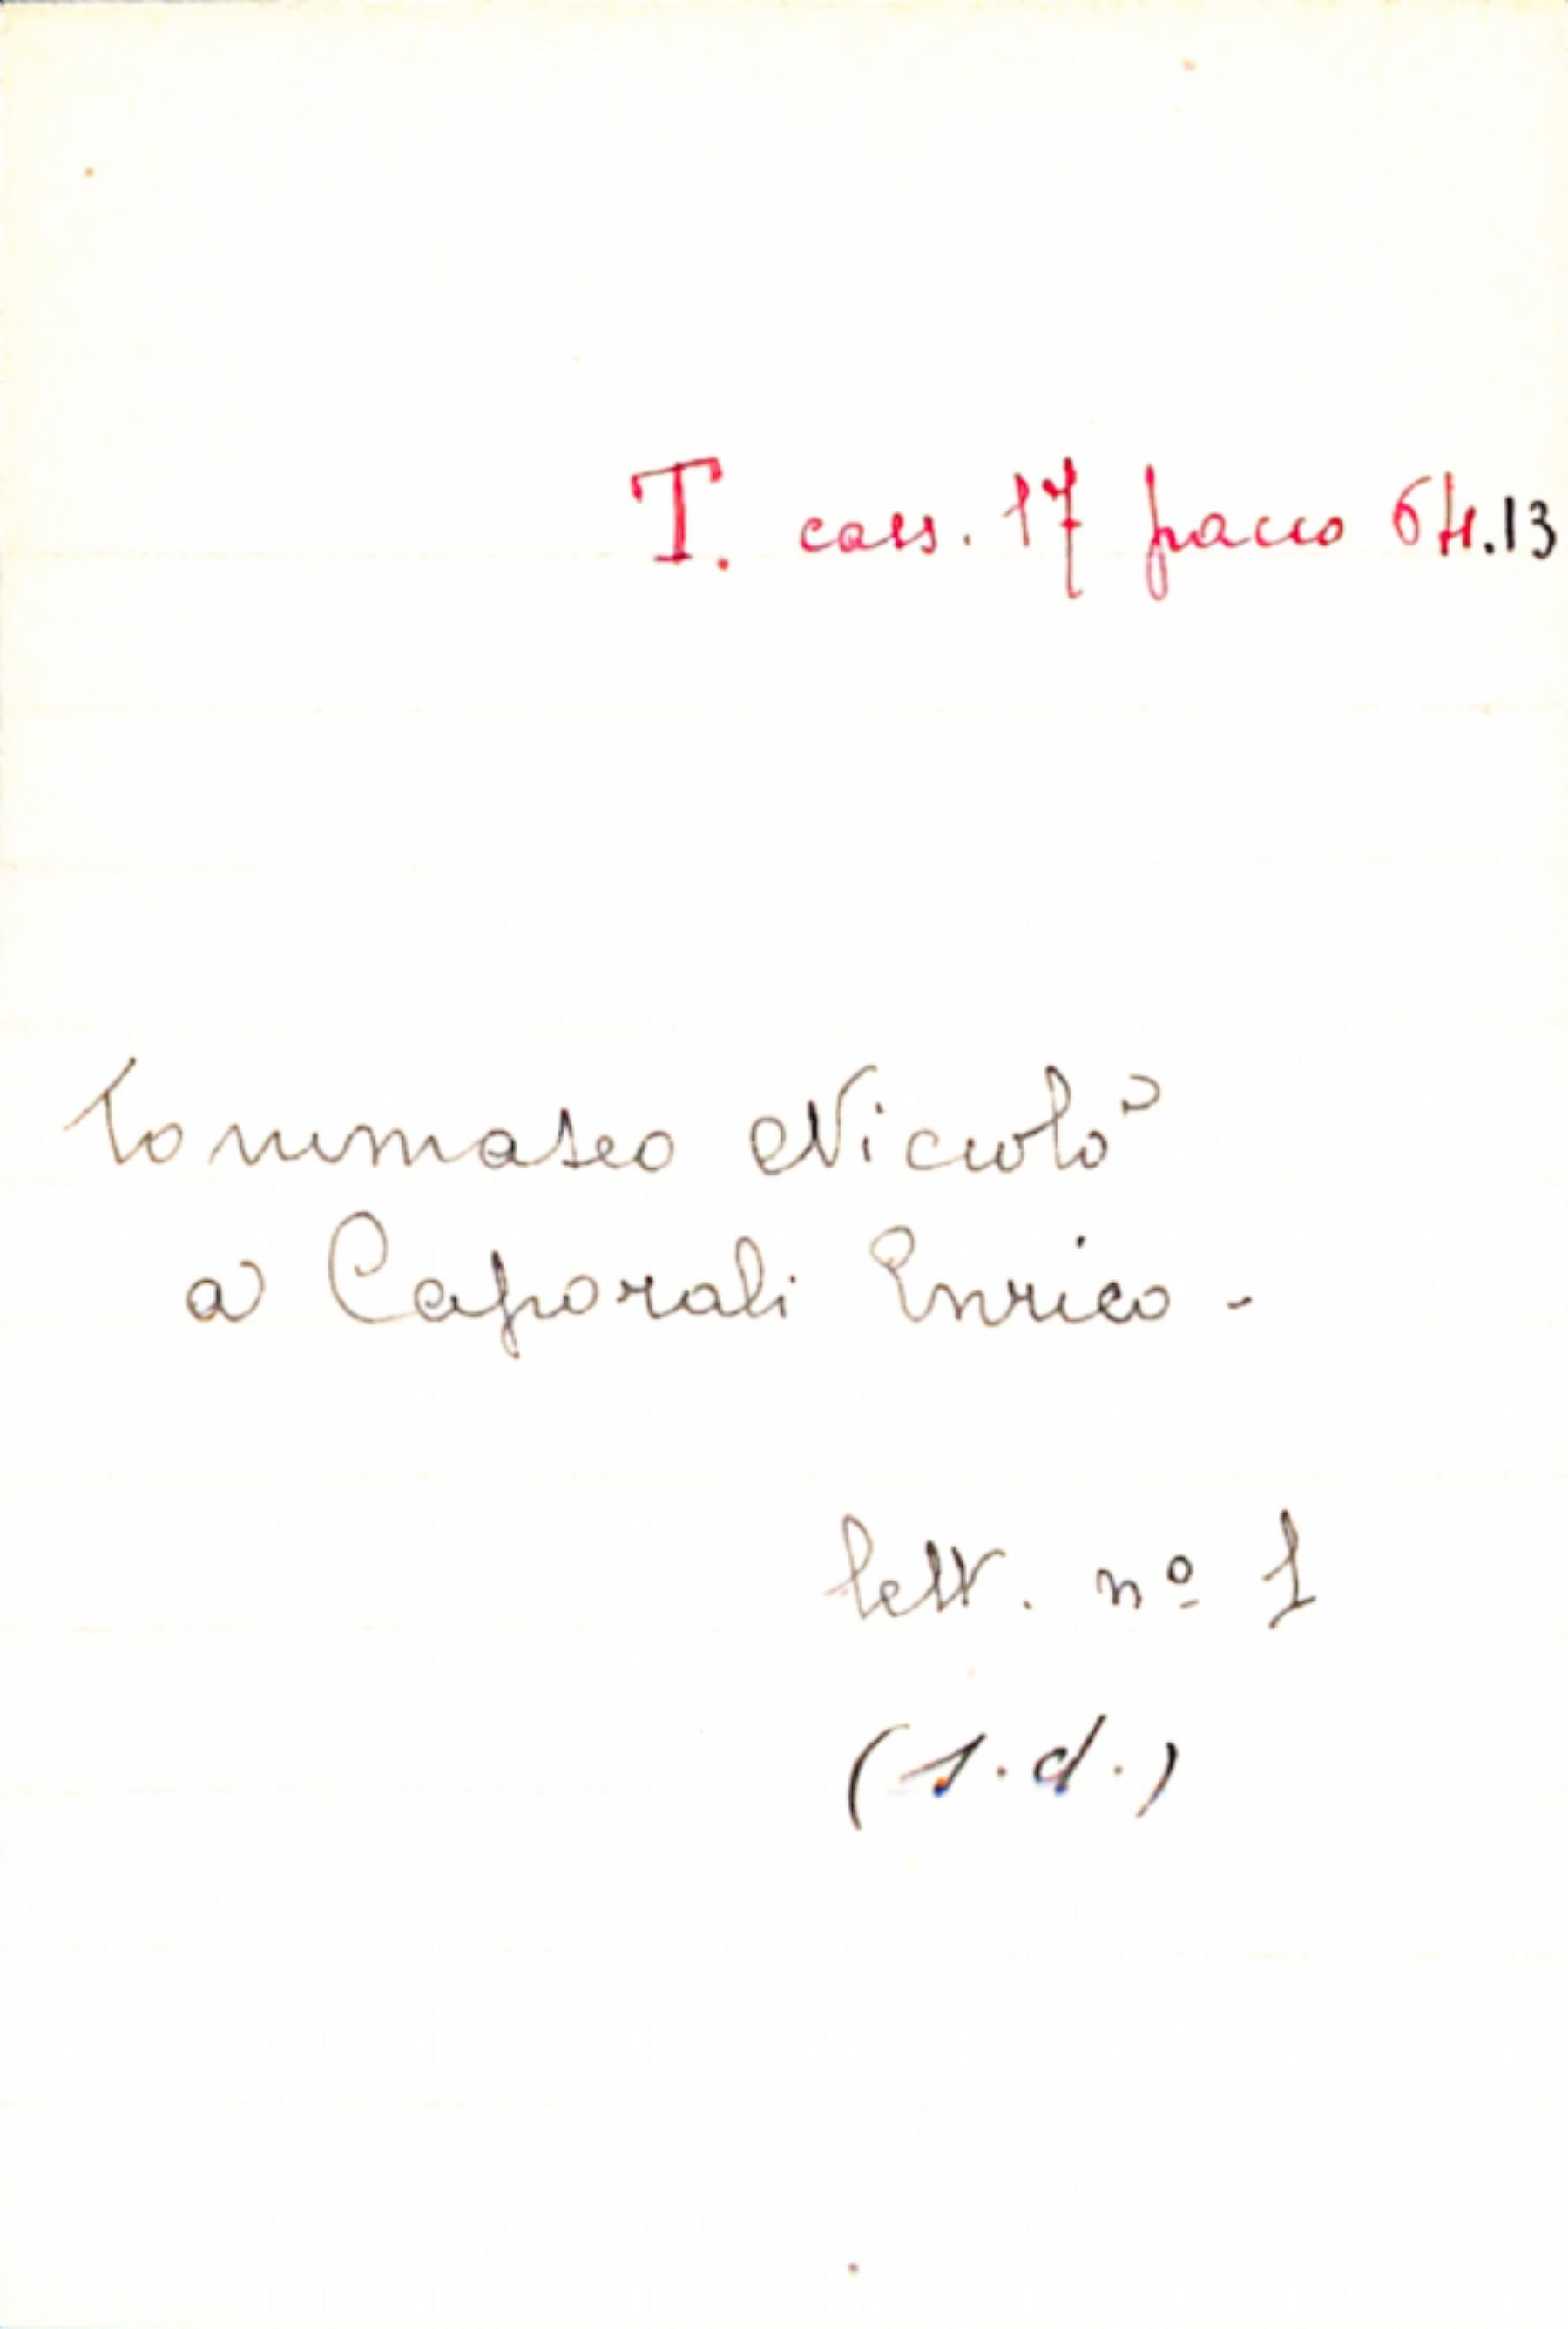 T. cass. 17 pacco 64.13
Tommaseo Niccolò
a Caporali Enrico -
lett. nº 1
(s.d.)